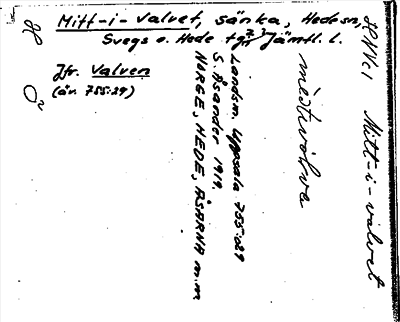 Mitt-i-valvet, sänka, Hedesn,
Svegs o. Hede tg Jämtl. l.
Jfr. Valven
(äv. 755:29)
Landsm. Uppsala 755:29
S. Åsander 1919.
NORGE, HEDE, ÅSARNA m.m
Mitt-i-valvet